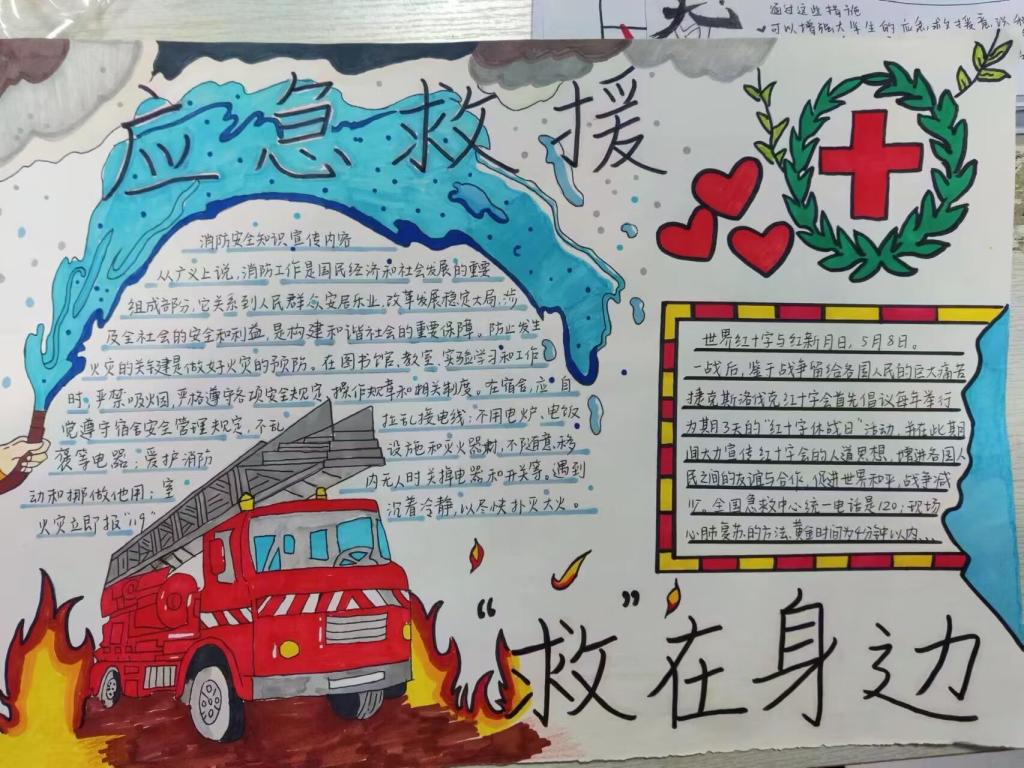 通过这些措施
可以增强大学生的应急救援意识和
应急救援
消防安全知识宣传内容
从广义上说,消防工作是国民经济和社会发展的重要
组成部分,它关系到人民群众安居乐业,改革发展稳定大局,涉
及全社会的安全和利益,是构建和谐社会的重要保障。防止发生
火灾的关键是做好火灾的预防。在图书馆、教室、实验学习和工作
时,严禁吸烟,严格遵守各项安全规定,操作规章和相关制度。在宿舍,应自
觉遵守宿舍安全管理规定,不乱 拉乱接电线;不用电炉、电饭
褒等电器;爱护消防 设施和灭火器材,不随意移
动和挪做他用;室 内无人时关掉电器和开关等。遇到
火灾立即报“119” 沉着冷静,以尽快扑灭大火。
世界红十字与红新月日,5月8日。
一战后,鉴于战争留给各国人民的巨大痛苦
捷克斯洛伐克红十字会首先倡议每年举行
为期3天的“红十字休战日”活动,并在此期
间大力宣传红十字会的人道思想,增进各国人
民之间的友谊与合作,促进世界和平,战争减
少。全国急救中心统一电话是120;现场
心肺复苏的方法,黄金时间为4分钟以内...
“救”在身边